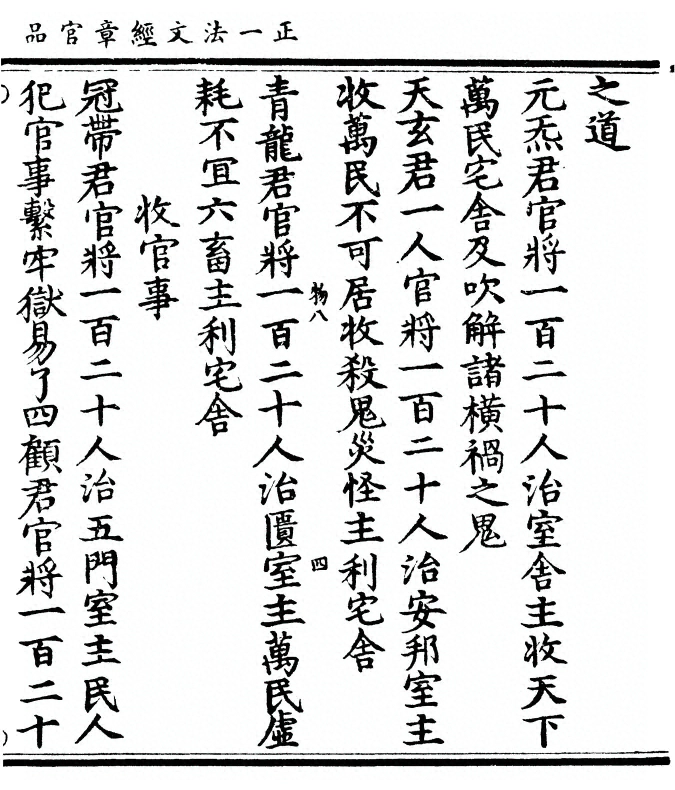 正一法文經章官品
之道
元炁君官將一百二十人治室舍主收天下
萬民宅舍及吹解諸橫禍之鬼
天玄君一人官將一百二十人治安邦室主
收萬民不可居收殺鬼災怪主利宅舍
物八
四
青龍君官將一百二十人治匱室主萬民虛
耗不宜六畜主利宅舍
收官事
冠帶君官將一百二十人治五門室主民人
犯官事繫牢獄易了四顧君官將一百二十